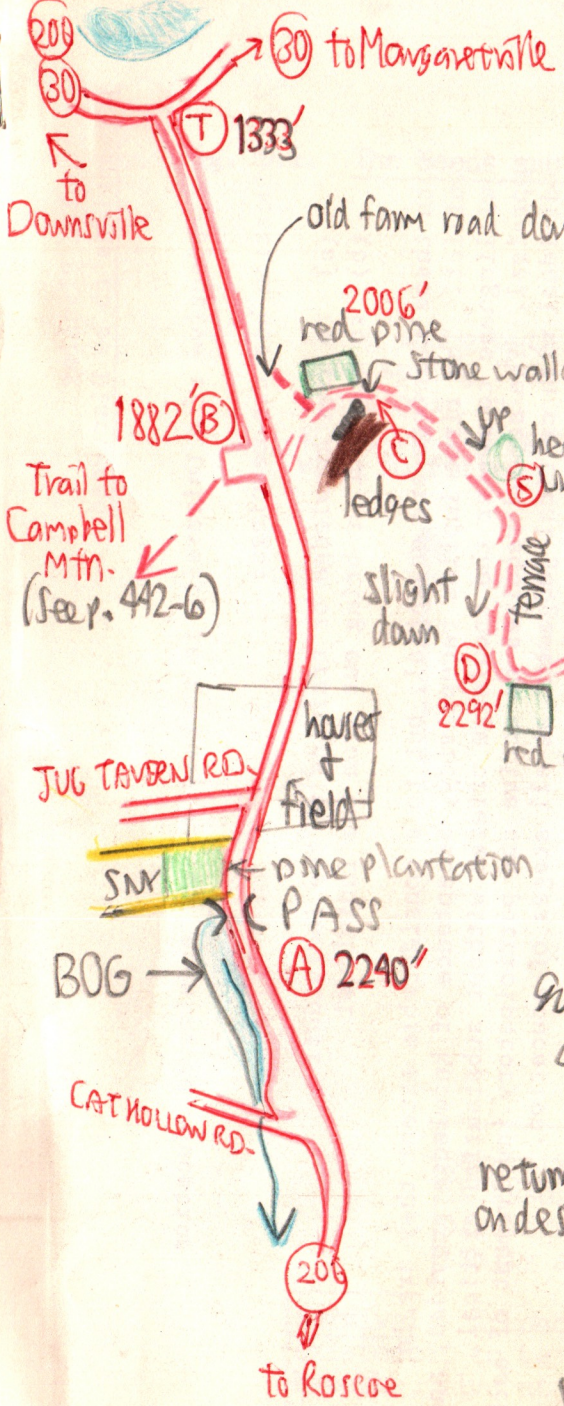 206
30
30 to Margaretville
T 1333'
to
Downsville
old farm road
2006'
red pine
stone wall
1882' B
up
C
S
Trail to
Campbell
Mtn.
(See p. 442-6)
ledges
terrace
slight
down
D
2292'
red
houses
+
field
JUG TAVERN RD.
SNY
pine plantation
PASS
BOG
A 2240"
CAT HOLLOW RD.
return
on
206
to Roscoe